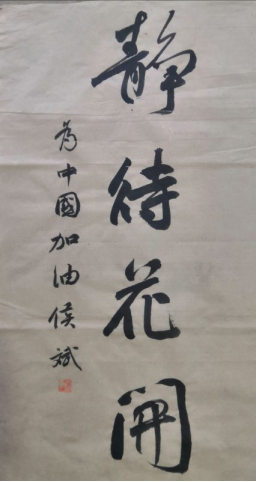 靜待花開
為中國加油侯斌